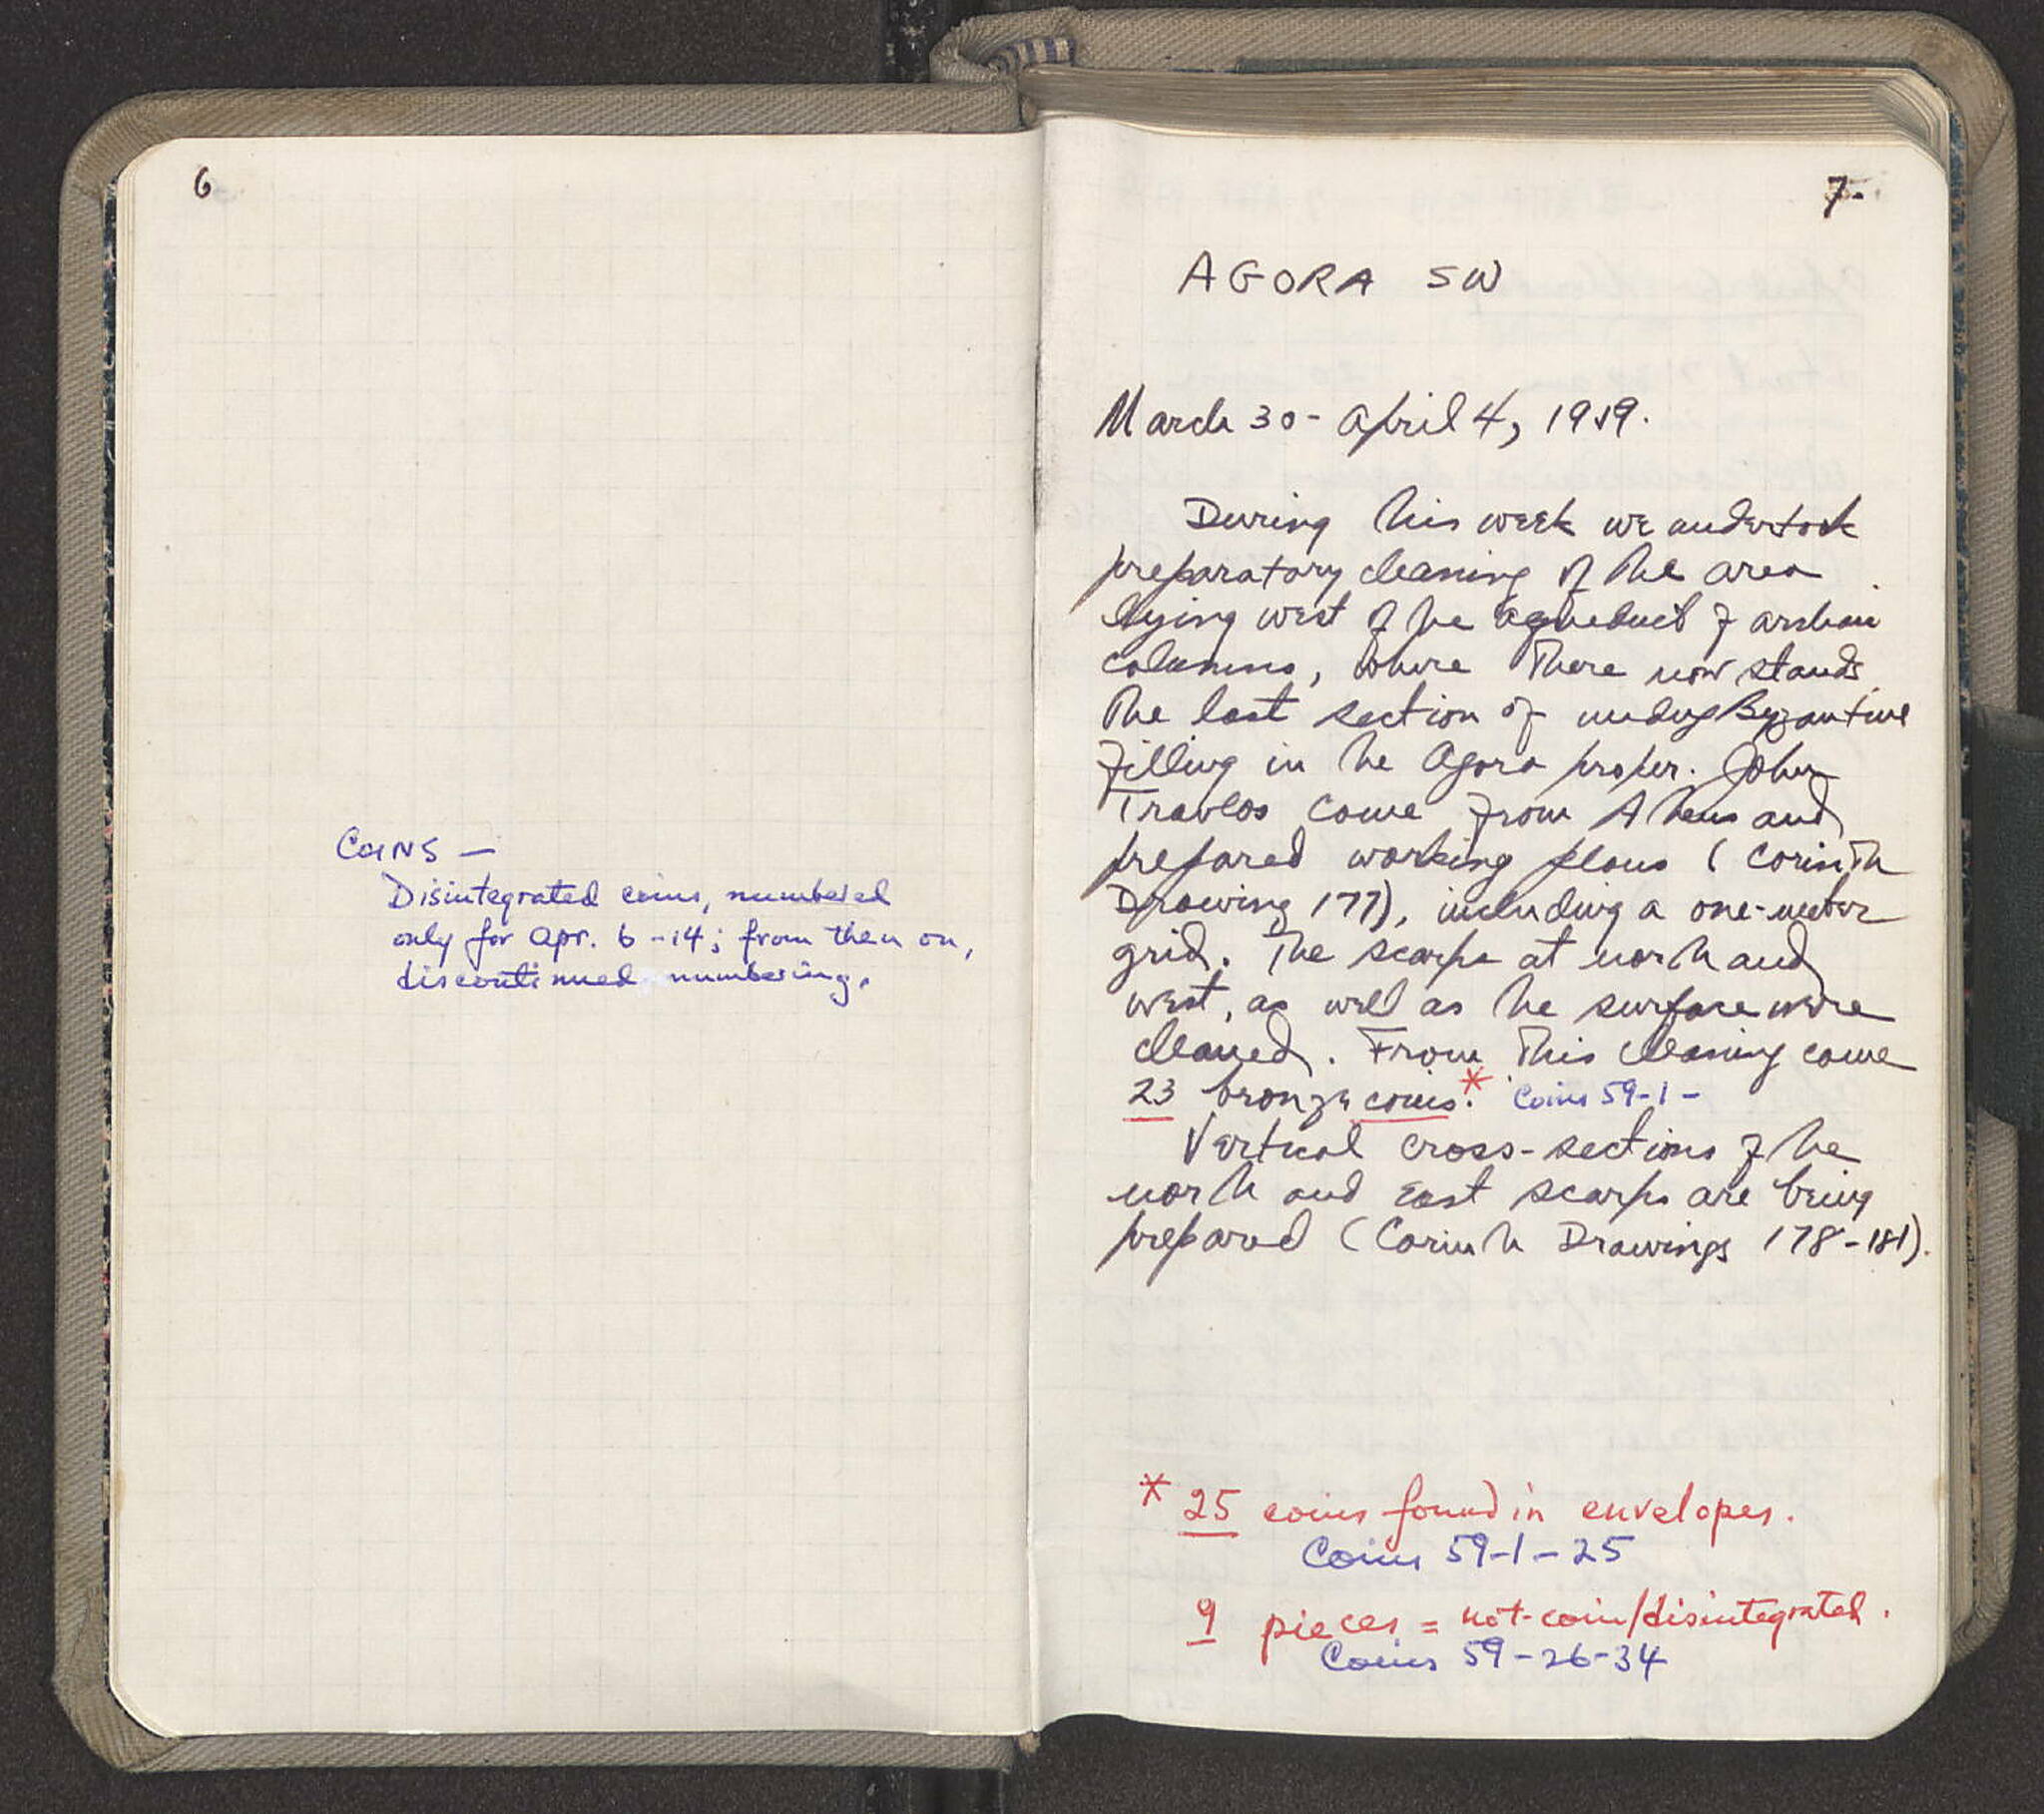 6
COINS —
Disintegrated coins, numbered
only for Apr. 6-14; from then on,
discontinued numbering.
7.
AGORA SW
March 30 - April 4, 1959.
During this week we undertook
preparatory cleaning of the area
lying west of the aqueduct of archaic
columns, where there now stands
the last section of undug Byzantine
filling in the Agora proper. John
Travlos came from Athens and
prepared working plans (Corinth
Drawing 177), including a one-meter
grid. The scarps at north and
west, as well as the surface were
cleaned. From this cleaning came
23 bronze coins.* Coins 59-1-
Vertical cross-sections of the
north and east scarps are being
prepared (Corinth Drawings 178-181).
* 25 coins found in envelopes.
Coins 59-1-25
9 pieces = not-coin/disintegrated.
Coins 59-26-34